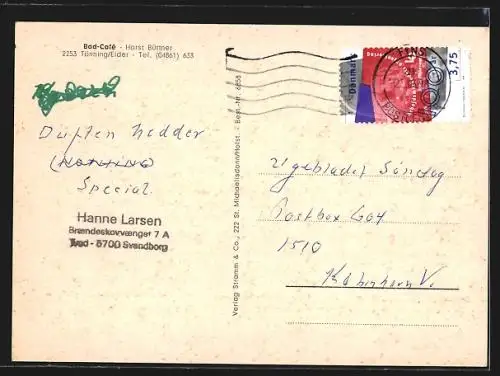 Bad-Café - Horst Büttner
2253 Tönning/Eider - Tel. (04861) 633
Danmark
3,75
Duften hedder
(NOTHING)
Special.
Hanne Larsen
Brændeskovvænget 7 A
Tved - 5700 Svendborg
Verlag Stramm & Co., 222 St. Michaelisdonn/Holst. - Best.-Nr. 6858
Ugebladet Søndag
Postbox 604
1510
København V.